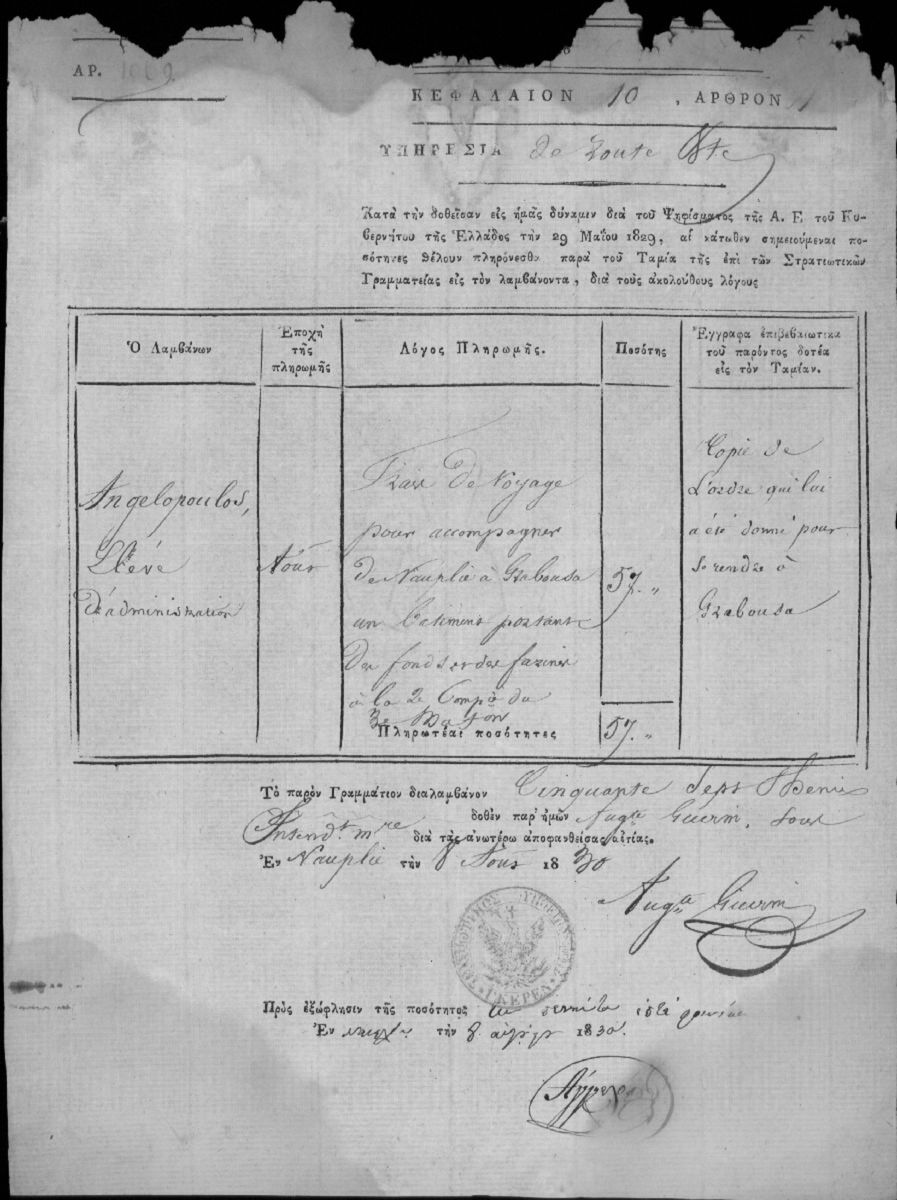 ΑΡ. 1009.
ΚΕΦΑΛΑΙΟΝ 10 , ΑΡΘΡΟΝ
ΥΠΗΡΕΣΙΑ de Route
Κατὰ τὴν δοθεῖσαν εἰς ἡμᾶς δύναμιν διὰ τοῦ Ψηφίσματος τῆς Α. Ε. τοῦ Κυ-
βερνήτου τῆς Ἑλλάδος τὴν 29 Μαΐου 1829, αἱ κάτωθεν σημειούμεναι πο-
σότητες θέλουν πληρόνεσθαι παρὰ τοῦ Ταμία τῆς ἐπὶ τῶν Στρατιωτικῶν
Γραμματείας εἰς τὸν λαμβάνοντα, διὰ τοὺς ἀκολούθους λόγους
Ὁ Λαμβάνων
Ἐποχὴ τῆς πληρωμῆς
Λόγος Πληρωμῆς.
Ποσότης
Ἔγγραφα ἐπιβεβαιωτικὰ
τοῦ παρόντος δοτέα
εἰς τὸν Ταμίαν.
Angelopoulos,
Elève
d'administration
Août
Frais de Voyage
pour accompagner
de Nauplie à Grabousa
un batiment portant
des fonds et des farines
à la 2e Compe du
3e Baton
57. "
Copie de
l'ordre qui lui
a été donné pour
se rendre à
Grabousa
Πληρωτέαι ποσότητες 57. "
Τὸ παρὸν Γραμμάτιον διαλαμβάνον Cinquante Sept Phenix
δοθὲν παρ' ἡμῶν Augte Guerin, Sous
Intendt mre διὰ τὰς ἀνωτέρω ἀποφανθείσας αἰτίας.
Ἐν Nauplie τὴν 8 Août 1830
Augte Guerin
ΓΚΕΡΕΝ
Πρὸς ἐξώφλησιν τῆς ποσότητος πενῆντα ἑπτὰ
Ἐν τὴν 8 1830.